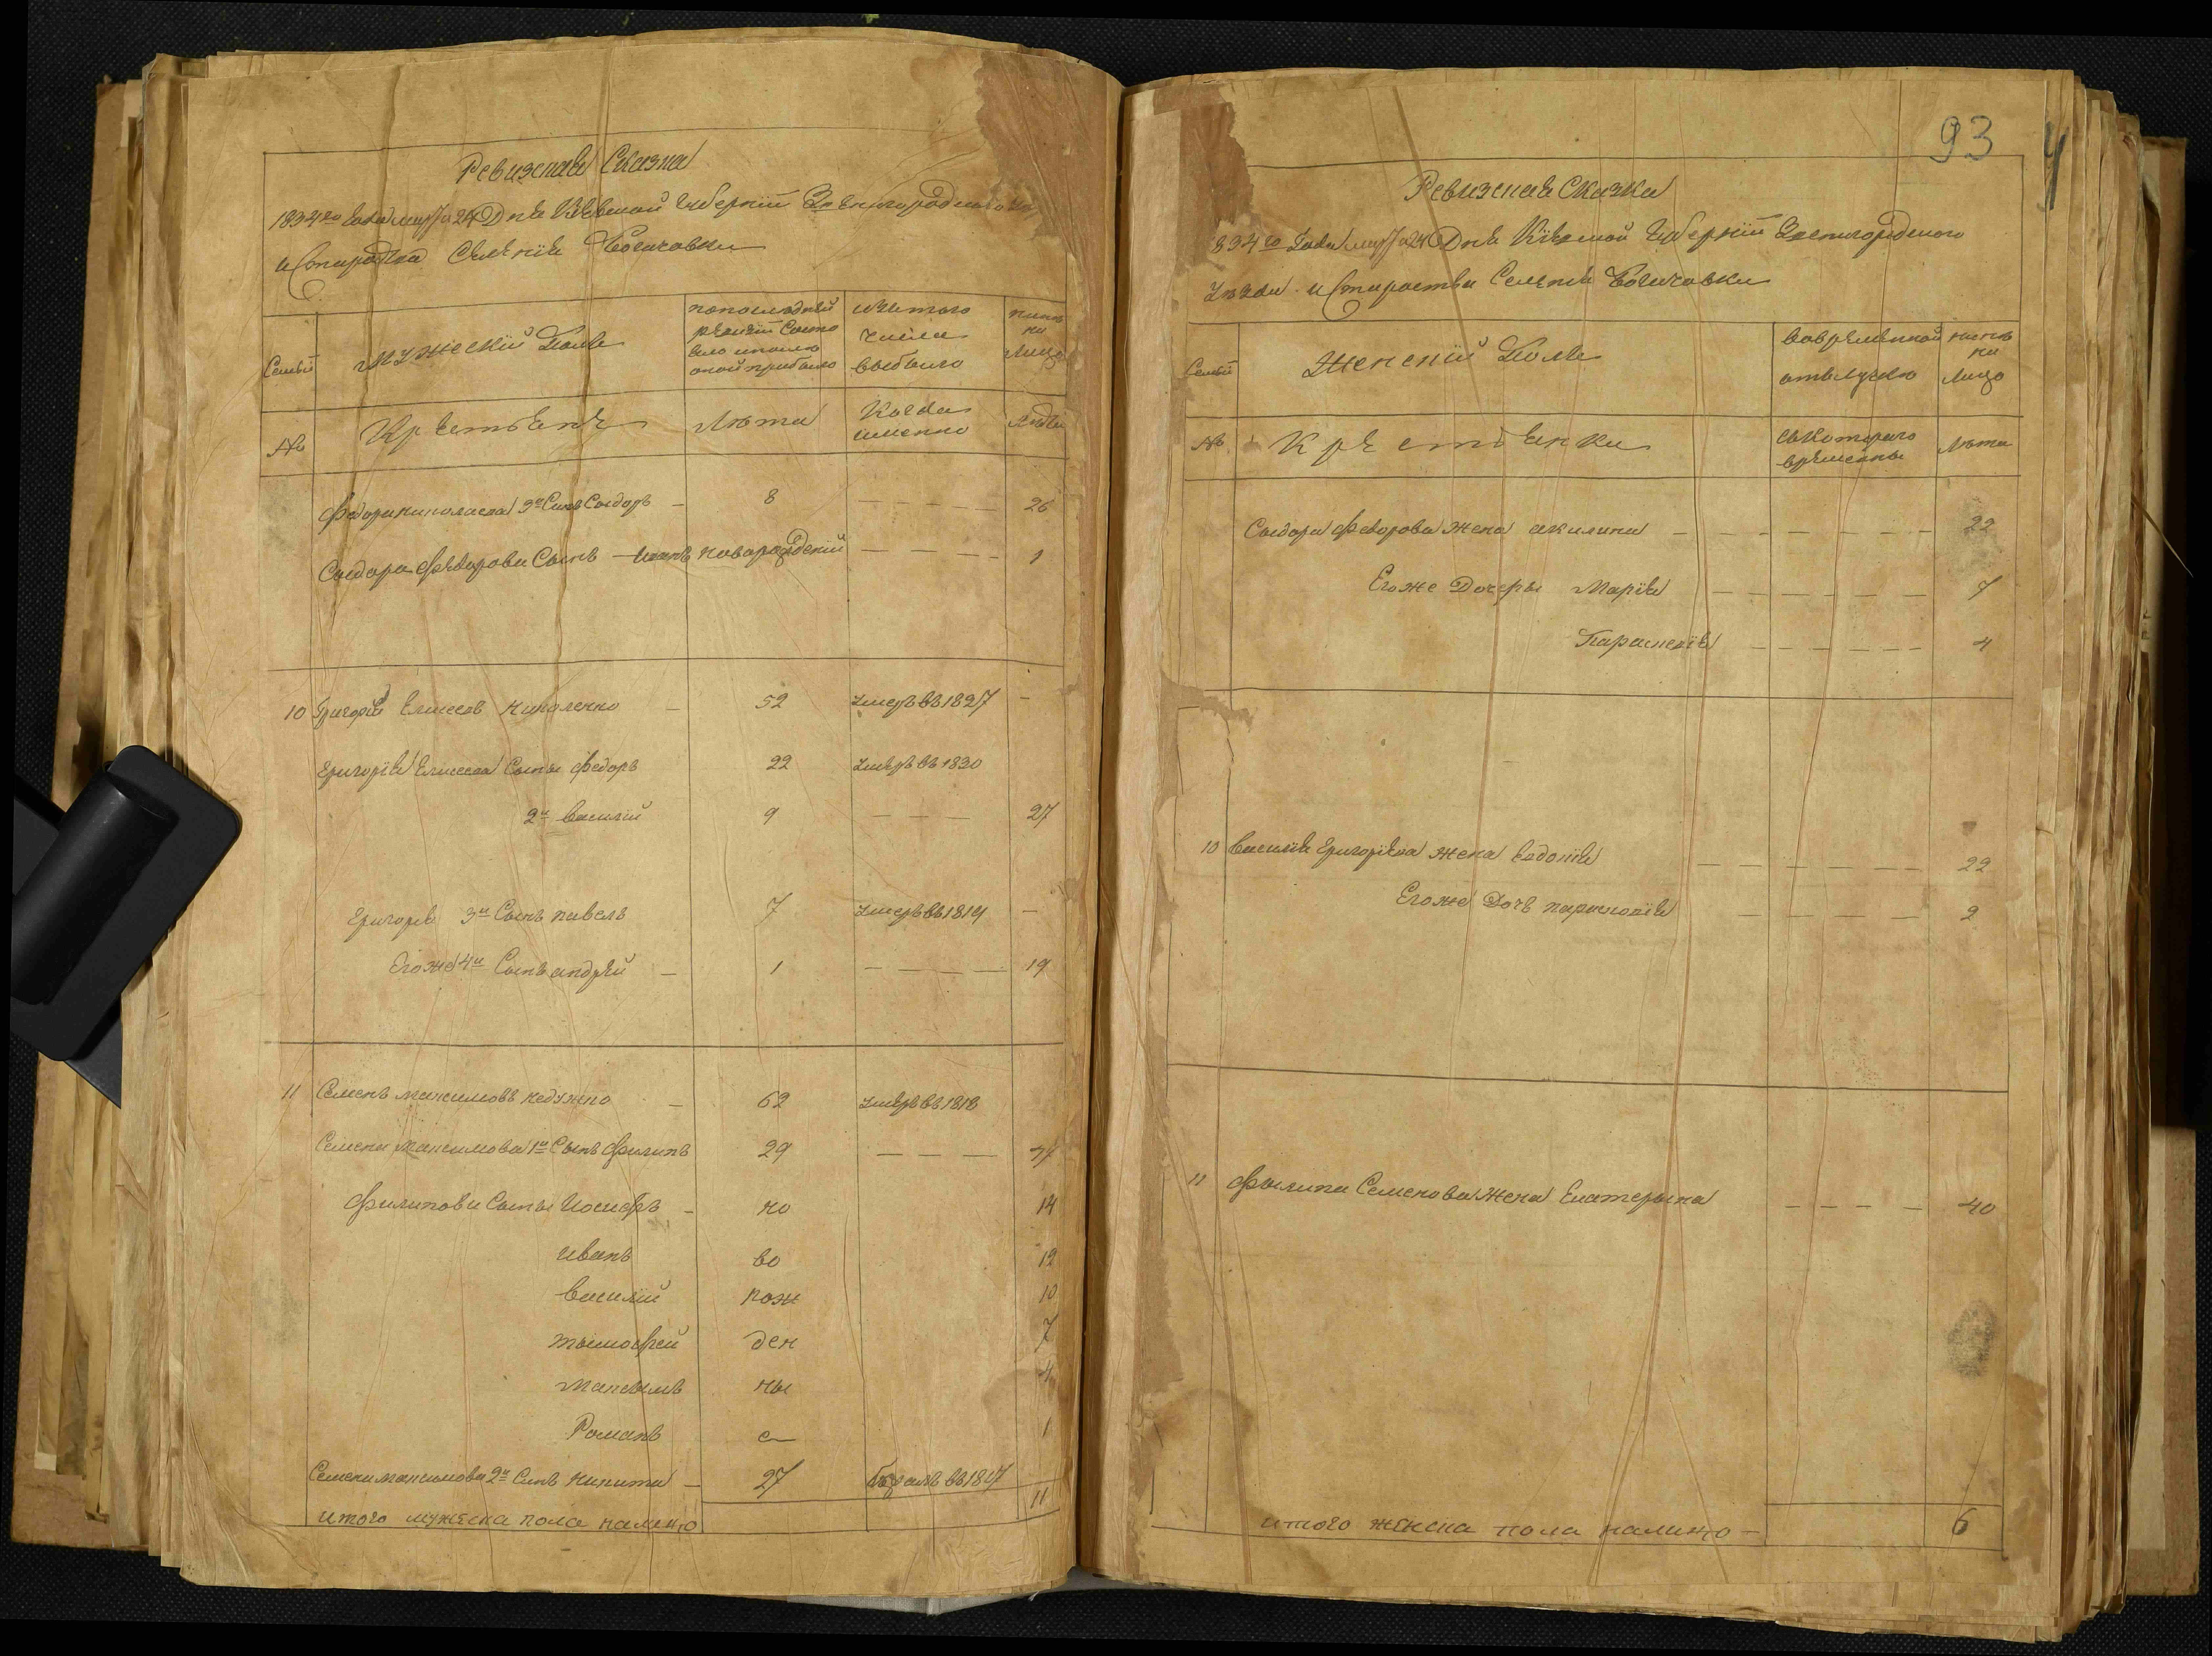 Ревизская Сказка
1834го Года марта 24 Дня Киевской Губернии Звенигородского
и Староства Селения Богачовки
Семьи
Мужеский Полъ
попоследней ревизии Состояло ипосле оной прибыло
изътого числа выбыло
ныне на Лицо
№
Крестьяне
Лета
Когда именно
Лета
Федора Николаева 3й Сынъ Сыдоръ — 8 — — — — 26
Сыдора Федорова Сынъ — новорожденный — — — — 1
10 Григорий Елисеев Николенко — 52 Умеръ въ 1827 —
Григория Елисеева Сыны Федоръ 22 Умеръ въ 1830
2й Василий 9 — — — 27
Григория 3й Сынъ павелъ 7 Умеръ въ 1819 —
Егоже 4й Сынъ андрей — 1 — — — — 19
11 Семенъ максимовъ недужко — 62 Умеръ въ 1818
Семена Максимова 1й Сынъ Филипъ 29 — — —
Филипови Сыны Иосифъ — но 14
иванъ во 12
василий рож 10
тымофей ден 7
Максымъ ны 4
Романъ е— 1
Семена максимова 2й Сынъ Никита — 27 въ 1817
итого мужеска пола налицо 11
93
Ревизская Сказка
1834го Года марта 24 Дня Киевской Губернии Звенигородского
Уезда и Староства Селения Богачовки
Семьи
Женский Полъ
вовременной отълучке
ныне на лицо
№
Крестьянки
съкоторого времены
Лета
Сыдора Федорова Жена акилина — — — — — — — 22
Егоже Дочеры Мария — — — — — — 7
Параскевия — — — — — — 4
10 Василия Григориева жена Евдокия — — — — — — 22
Егоже Дочь параскевия — — — — — 2
11 Филипа Семенова Жена Екатерына — — — — 40
итого женска пола налицо — 6